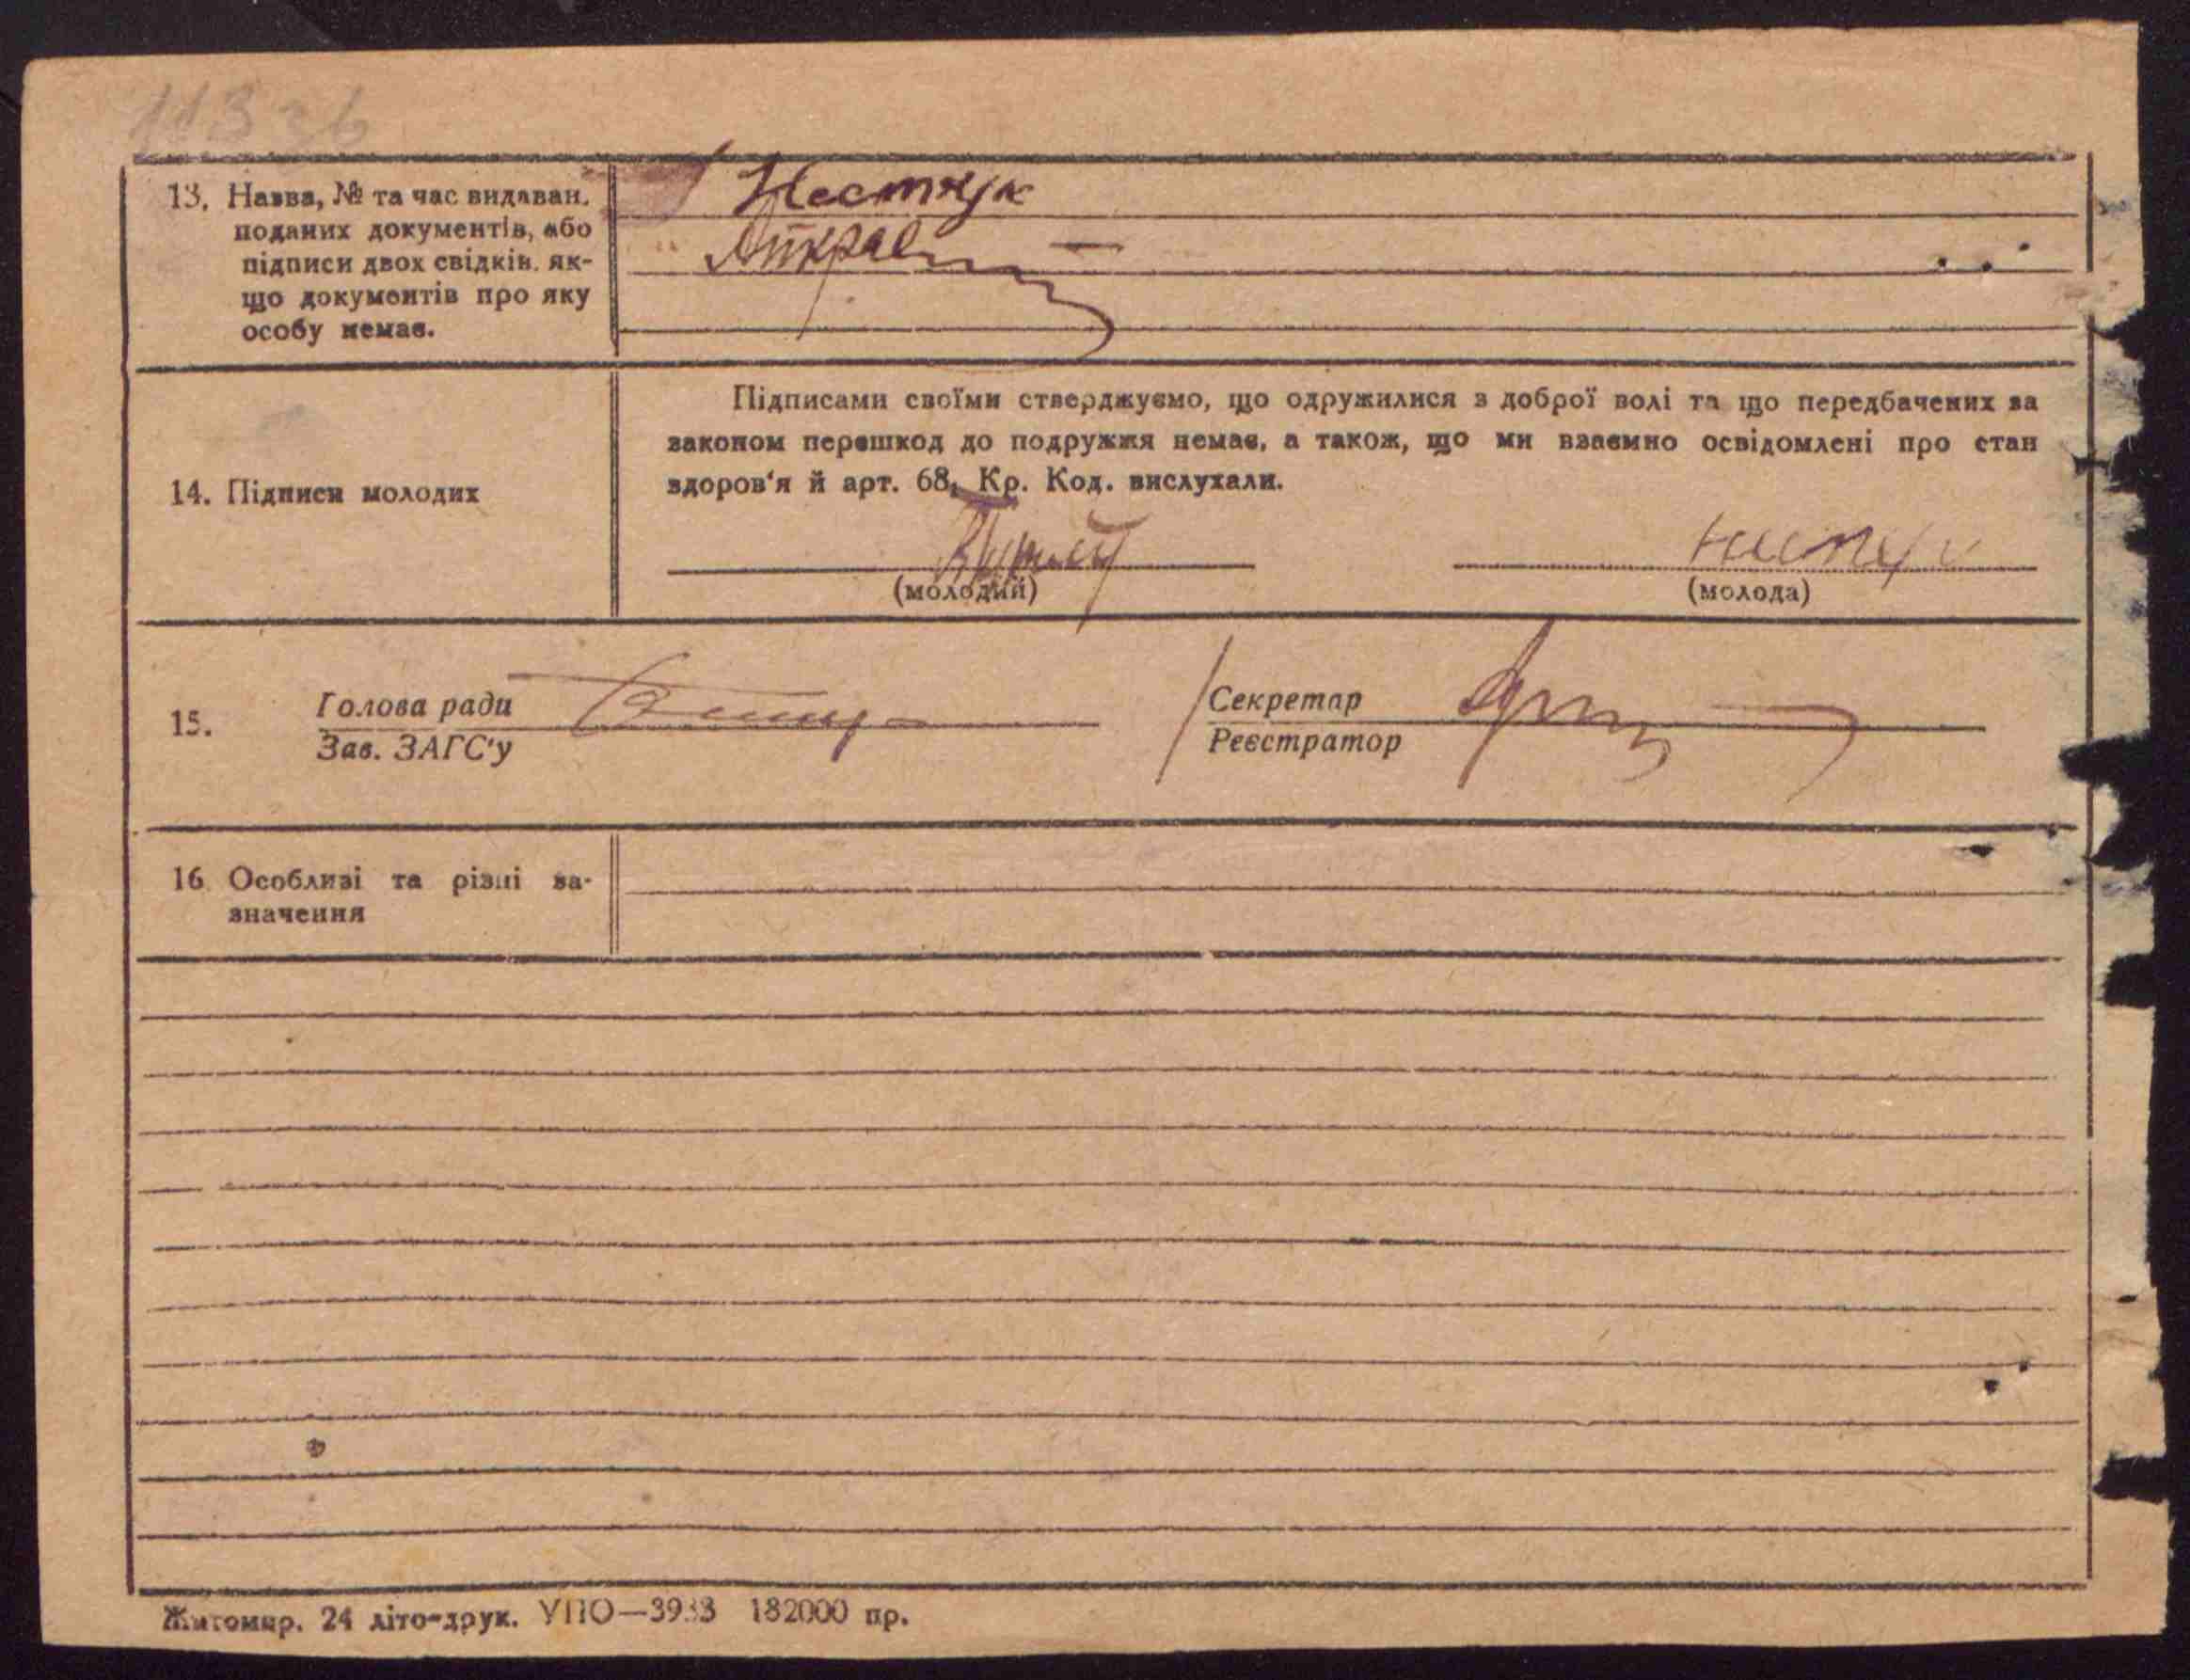 11336
13. Назва, № та час видаван.
поданих документів, або
підписи двох свідків. як-
що документів про яку
особу немає.
Нестчук
14. Підписи молодих
Підписами своїми стверджуємо, що одружилися з доброї волі та що передбачених за
законом перешкод до подружжя немає, а також, що ми взаємно освідомлені про стан
здоров'я й арт. 68, Кр. Код. вислухали.
(молодий)
(молода)
15.
Голова ради
Зав. ЗАГС'у
Секретар
Реєстратор
16 Особливі та різні за-
значення
Житомир. 24 літо-друк. УПО—3933 182000 пр.